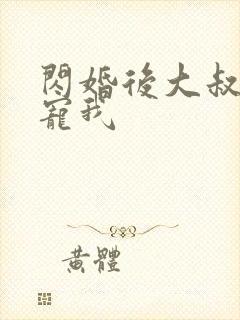 閃婚後大叔
寵我
黃體